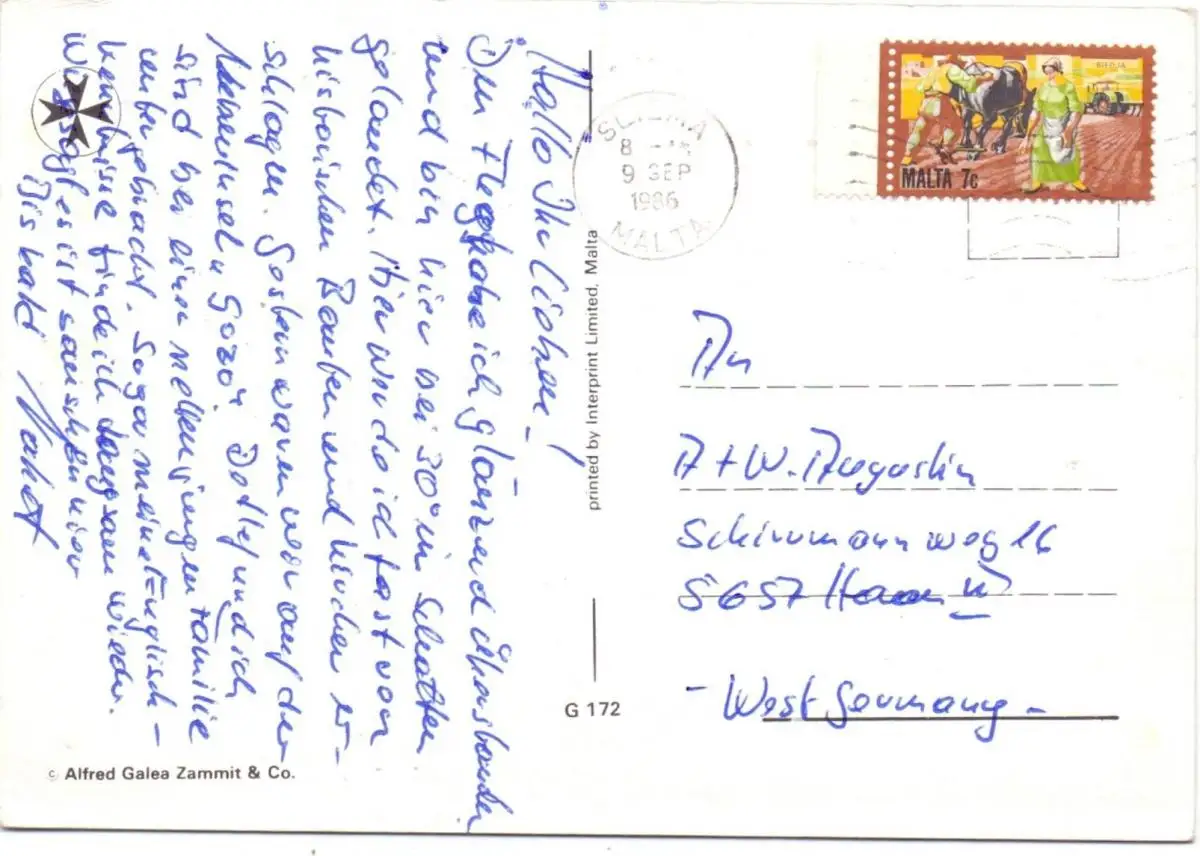 Hallo Ihr Lieben!
Den Flug habe ich glänzend überstanden
und bin hier bei 30° im Schatten
gelandet. Hier wurde ich fast von
historischen Bauten und Kirchen er-
schlagen. Gestern waren wir auf der
Nebeninsel "Gozo". Detlef und ich
sind bei einer netten jungen Familie
untergebracht. Sogar meine Englisch-
kenntnisse finde ich langsam wieder.
Wie gesagt es ist sau schön hier
Bis bald
© Alfred Galea Zammit & Co.
printed by Interprint Limited, Malta
G 172
SLIEMA
8
9 SEP
1986
MALTA
BIEDJA
MALTA 7c
An
A + W. Augustin
Schirrmannweg 16
5657 Haan
- West Germany -